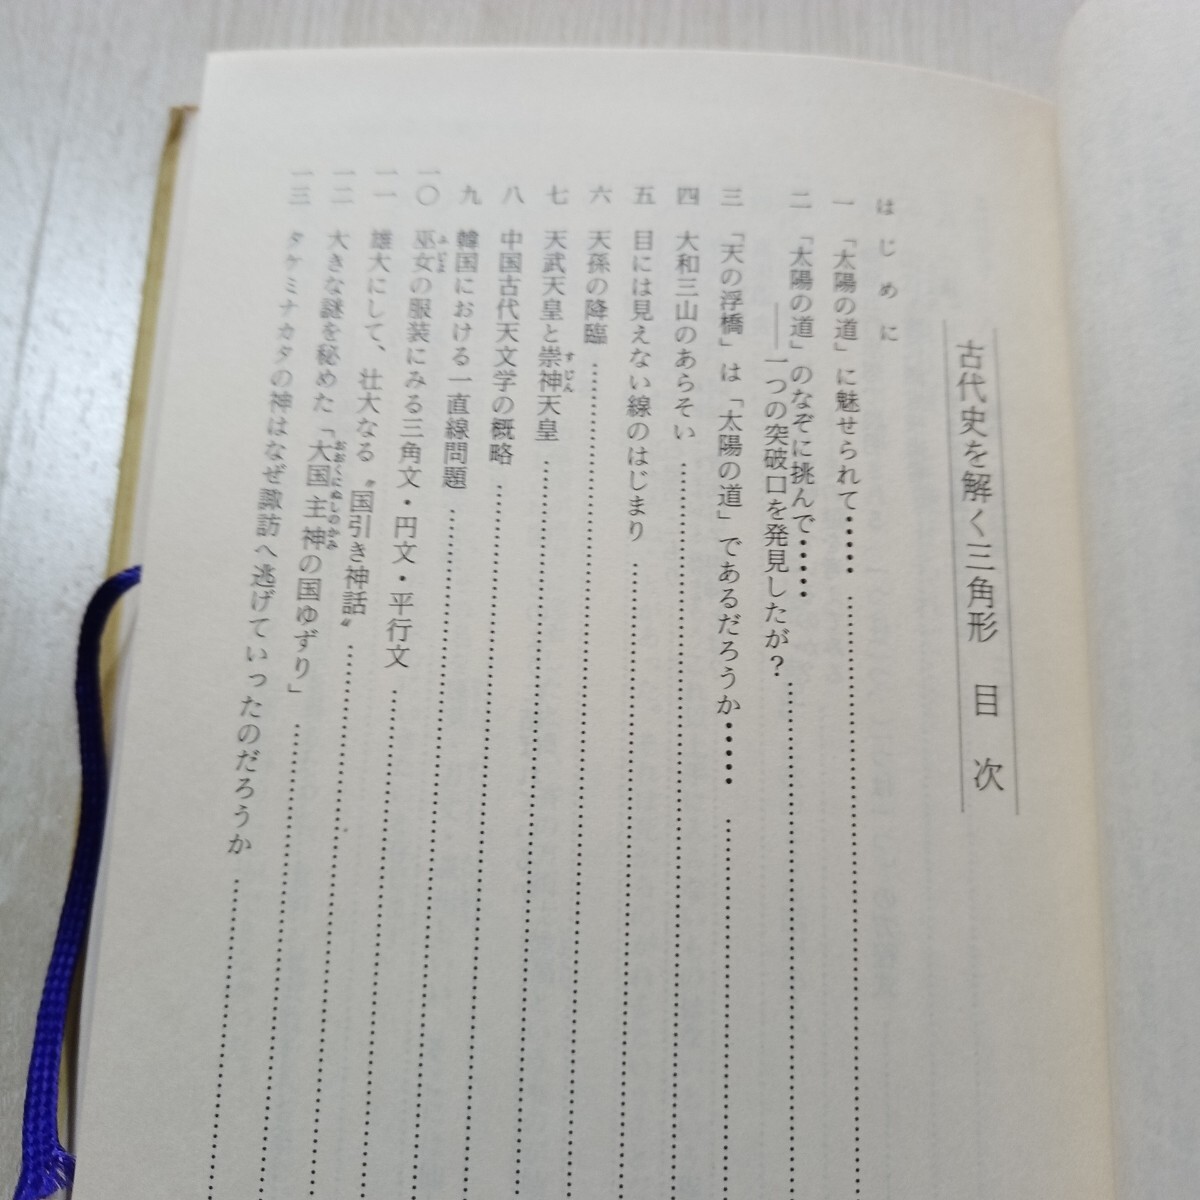 古代史を解く三角形 目次
はじめに
一 「太陽の道」に魅せられて・・・・・
二 「太陽の道」のなぞに挑んで・・・・・
――一つの突破口を発見したが？
三 「天の浮橋」は「太陽の道」であるだろうか・・・・・
四 大和三山のあらそい
五 目には見えない線のはじまり
六 天孫の降臨
七 天武天皇と崇神天皇
すじん
八 中国古代天文学の概略
九 韓国における一直線問題
一〇 巫女の服装にみる三角文・円文・平行文
ふじょ
一一 雄大にして、壮大なる〝国引き神話〟
一二 大きな謎を秘めた「大国主神の国ゆずり」
おおくにぬしのかみ
一三 タケミナカタの神はなぜ諏訪へ逃げていったのだろうか